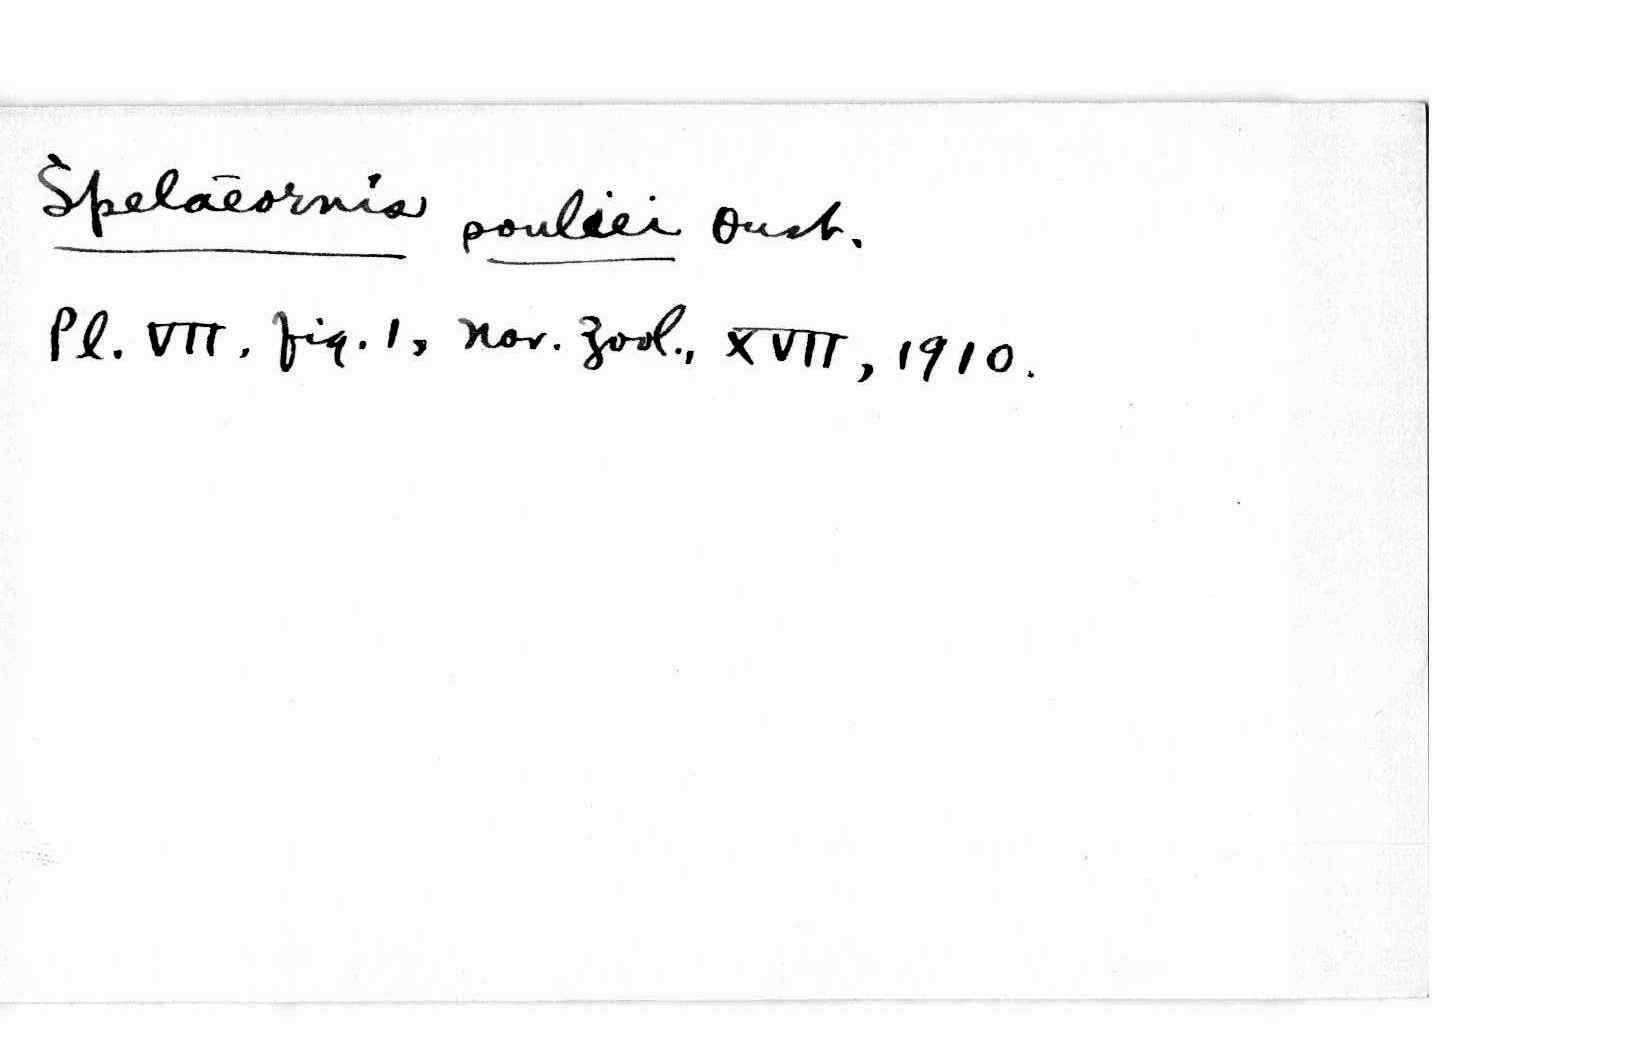 Spelaeornis pouliei Oust.
Pl. VII, fig. 1, Nov. Zool., XVII, 1910.